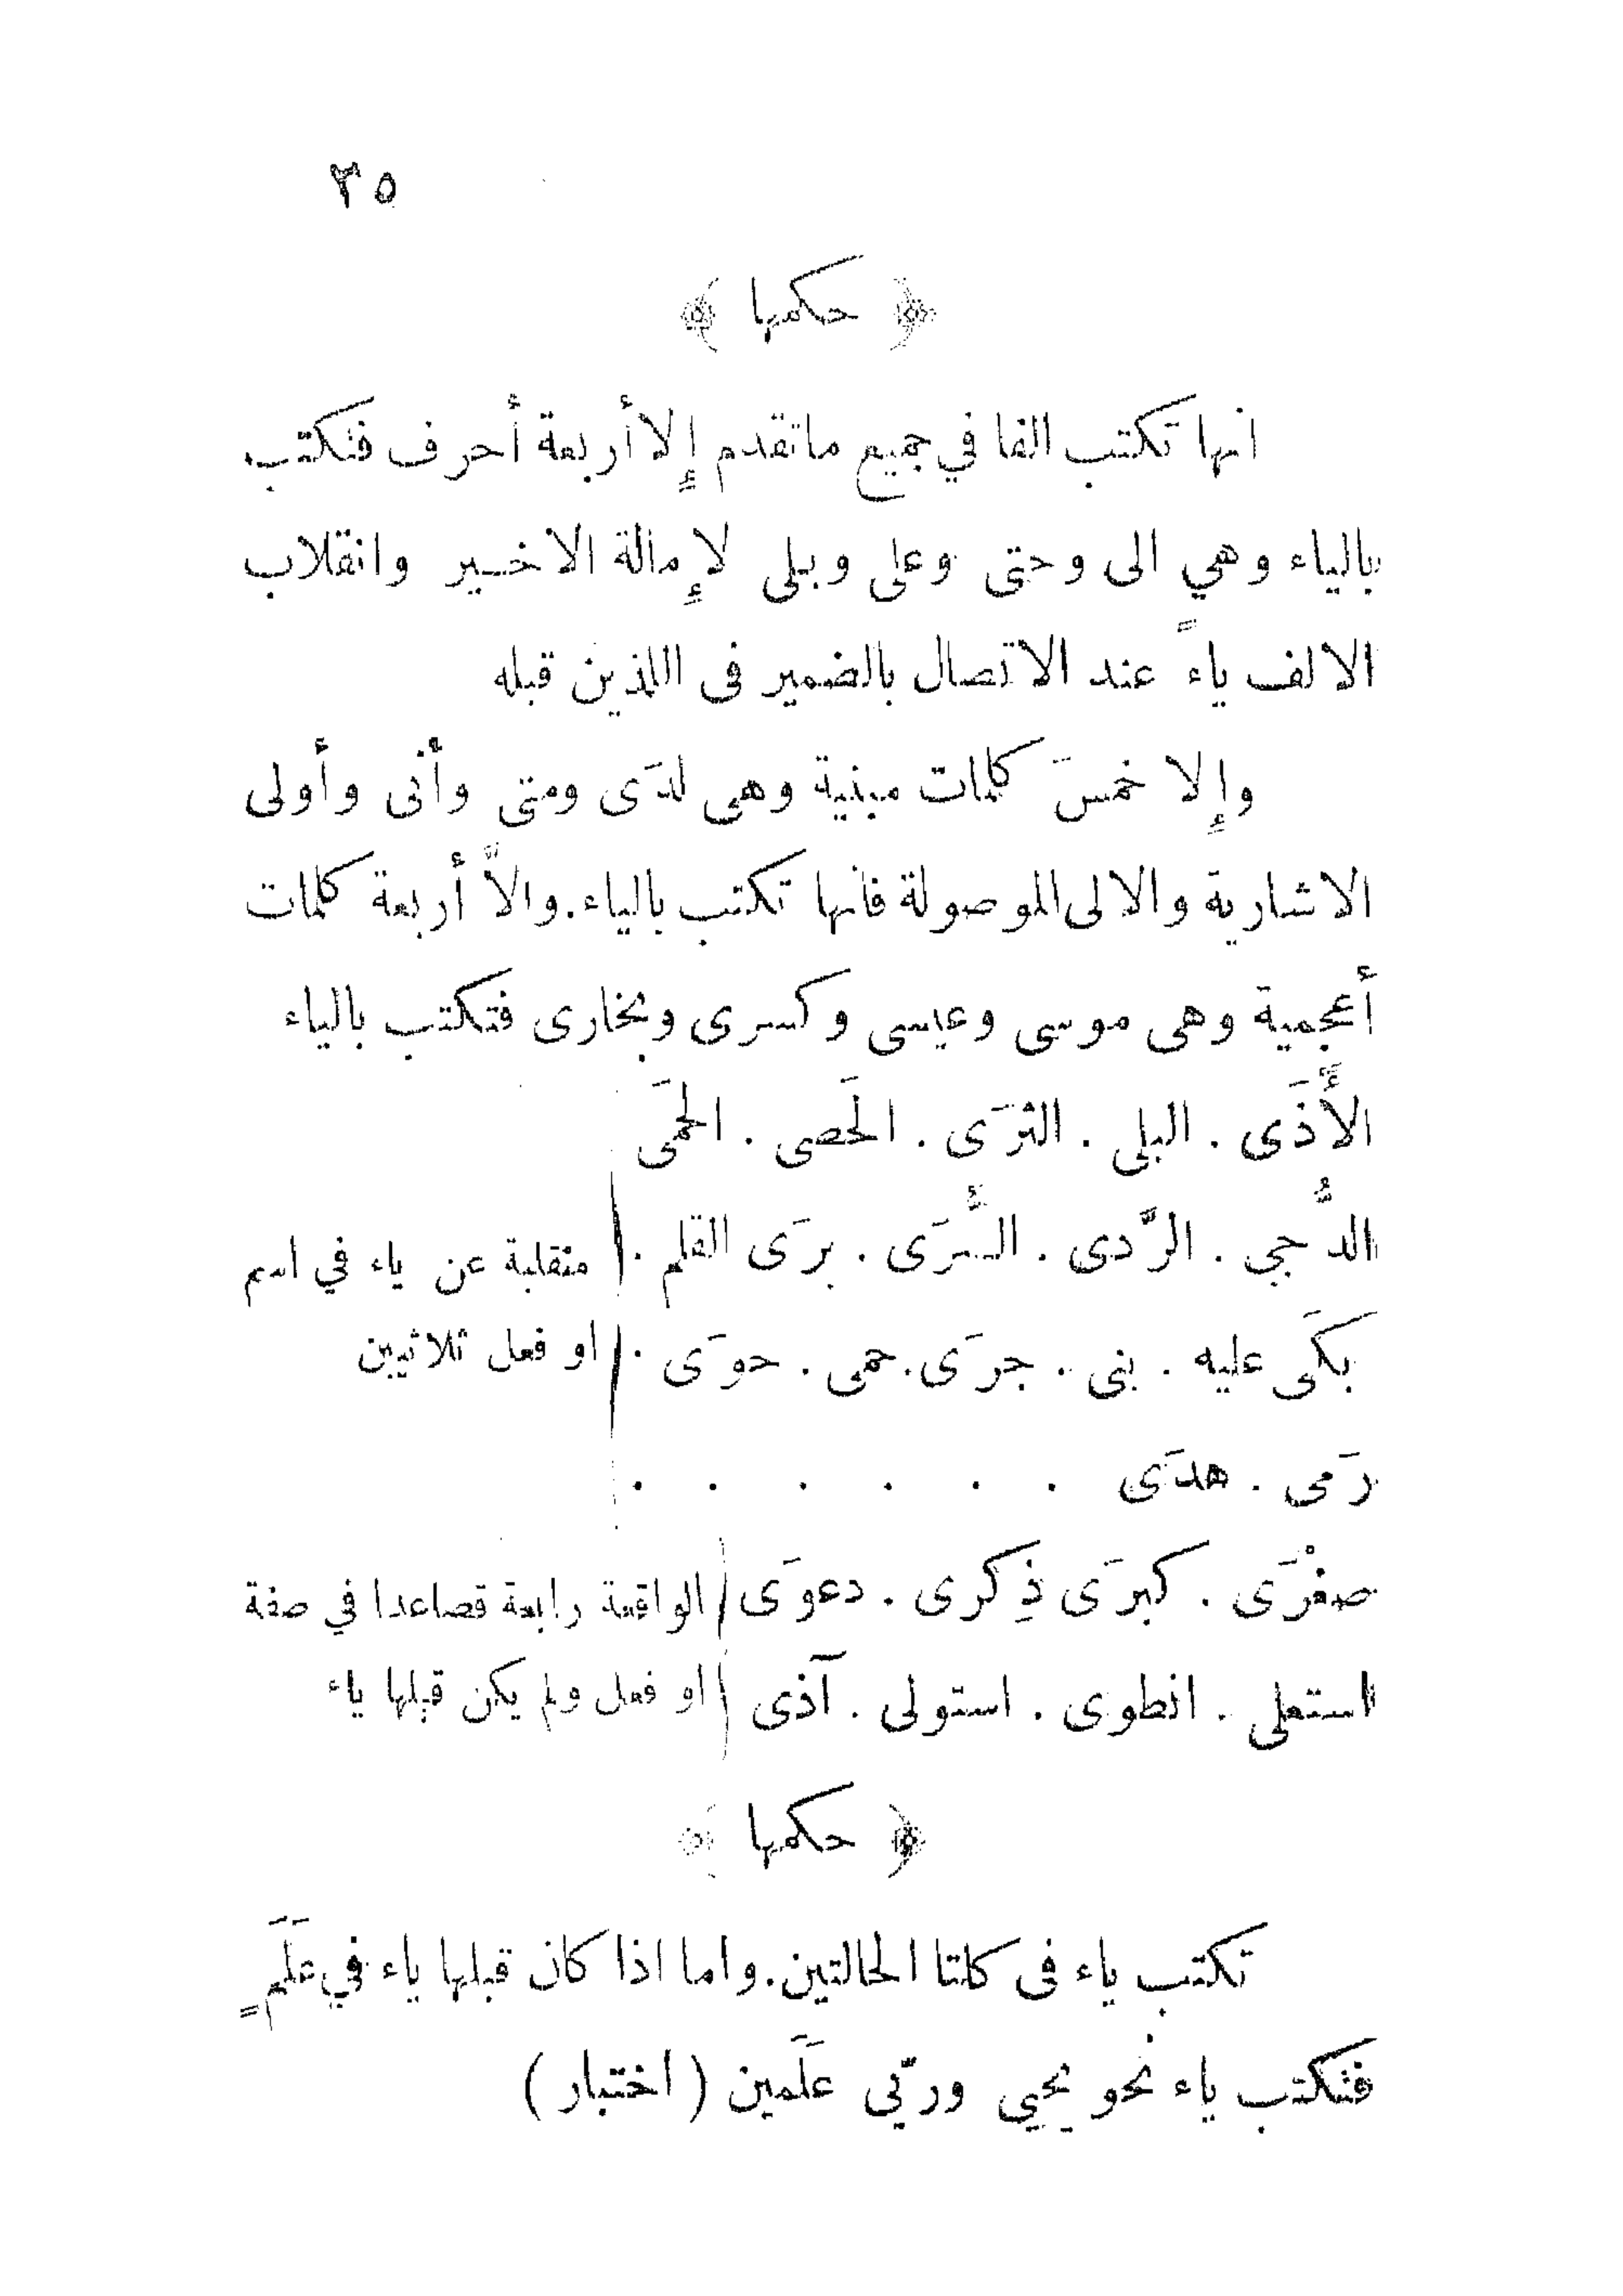 ٣٥
﴿ حكمها ﴾
انها تكتب الفا في جميع ماتقدم إلا أربعة أحرف فتكتب
بالياء وهي الى وحتى وعلى وبلى لإمالة الاخير وانقلاب
الالف ياءً عند الاتصال بالضمير فى اللذين قبله
وإلا خمسَ كلمات مبنية وهى لدَى ومتى وأنى وأولى
الاشارية والالى الموصولة فانها تكتب بالياء . والاَّ أربعة كلمات
أعجمية وهى موسى وعيسى وكسرى وبخارى فتكتب بالياء
الأَذَى . البلى . الثرَى . الحَصى . الحمَى
الدُّجي . الرَّدى . السُّرَى . برَى القلم . منقلبة عن ياء في اسم
بكَى عليه . بنى . جرَى . حمى . حوَى . او فعل ثلاثيين
رَمى . هدَى . . . . . .
صغْرَى . كبرَى ذِكرى . دعوَى الواقعة رابعة فصاعدا في صفة
استعلى . انطوى . استولى . آذى او فعل ولم يكن قبلها ياء
﴿ حكمها ﴾
تكتب ياء فى كلتا الحالتين . واما اذا كان قبلها ياء في عَلَمٍ
فتكتب ياء نحو يحيي وريّي عَلَمين ( اختبار )